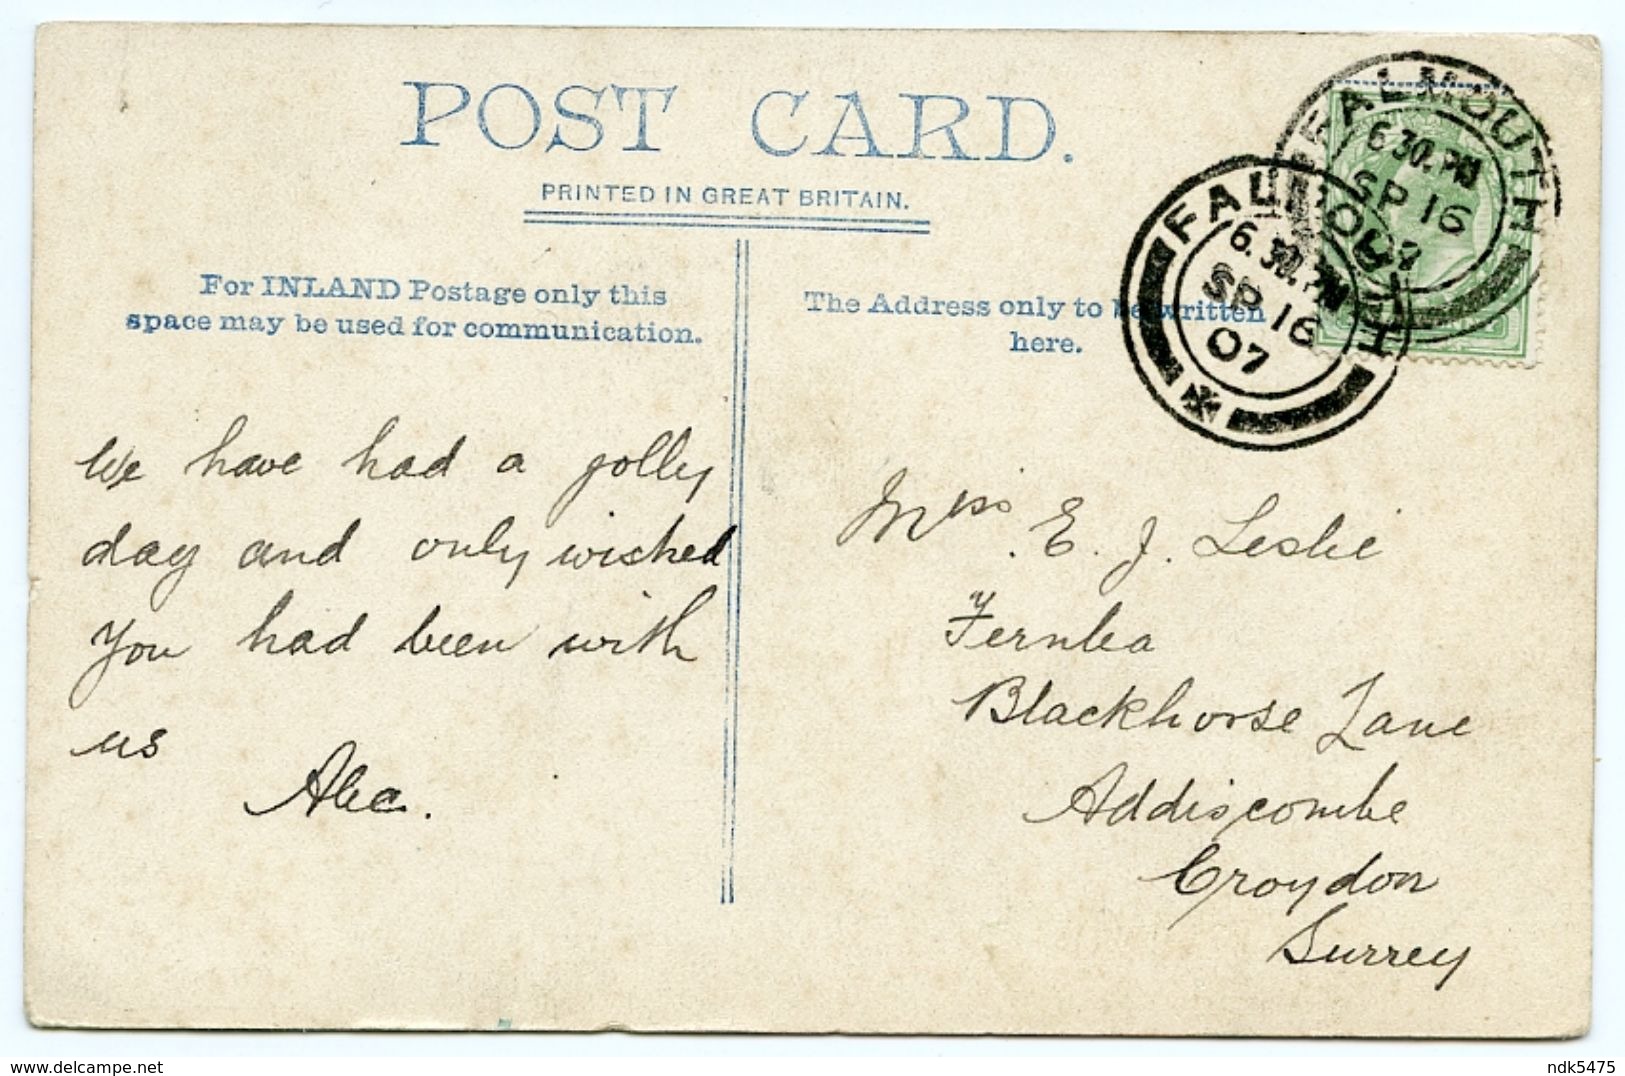 POST CARD.
PRINTED IN GREAT BRITAIN.
For INLAND Postage only this
space may be used for communication.
The Address only to be written
here.
FALMOUTH
6.30.PM
SP 16
07
FALMOUTH
6.30.PM
SP 16
07
We have had a jolly
day and only wished
You had been with
us
Alec.
Miss E. J. Leslie
Fernlea
Blackhorse Lane
Addiscombe
Croydon
Surrey
www.delcampe.net
ndk5475